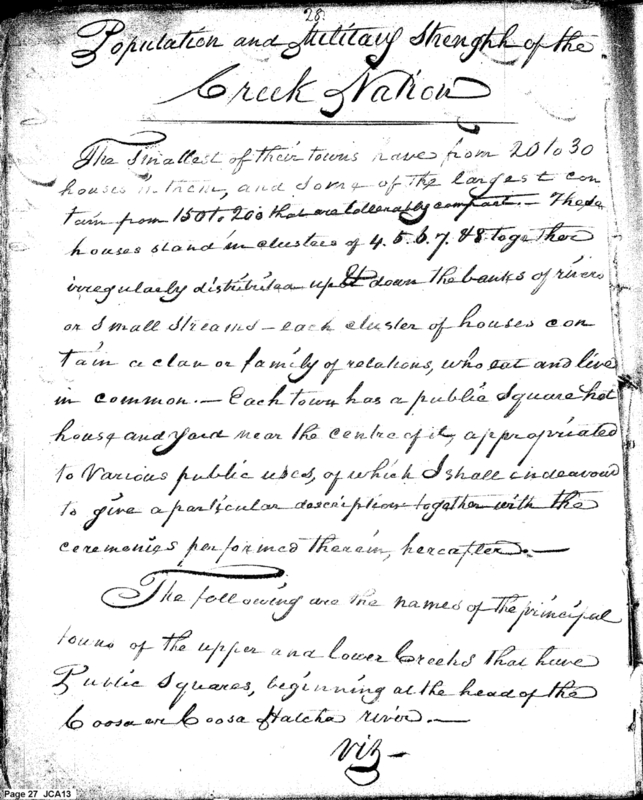 28.
Population and Military Strenghh of the
Creek Nation
The Smallest of their towns have from 20 to 30
houses in them, and some of the largest con
tain from 150 to 200 that are tollerably compact. — These
houses stand in clusters of 4. 5. 6. 7. & 8. together
irregularly distributed up & down the banks of rivers
or small streams — each cluster of houses con
tain a clan or family of relations, who eat and live
in common. — Each town has a public Square hot
house and yard near the centre of it, appropriated
to Various public uses, of which I shall endeavour
to give a particular description together with the
ceremonies performed therein, hereafter. —
The following are the names of the principal
towns of the upper and lower Creeks that have
Public Squares, beginning at the head of the
Coosa or Coosa Hatcha river. —
viz —
Page 27 JCA13